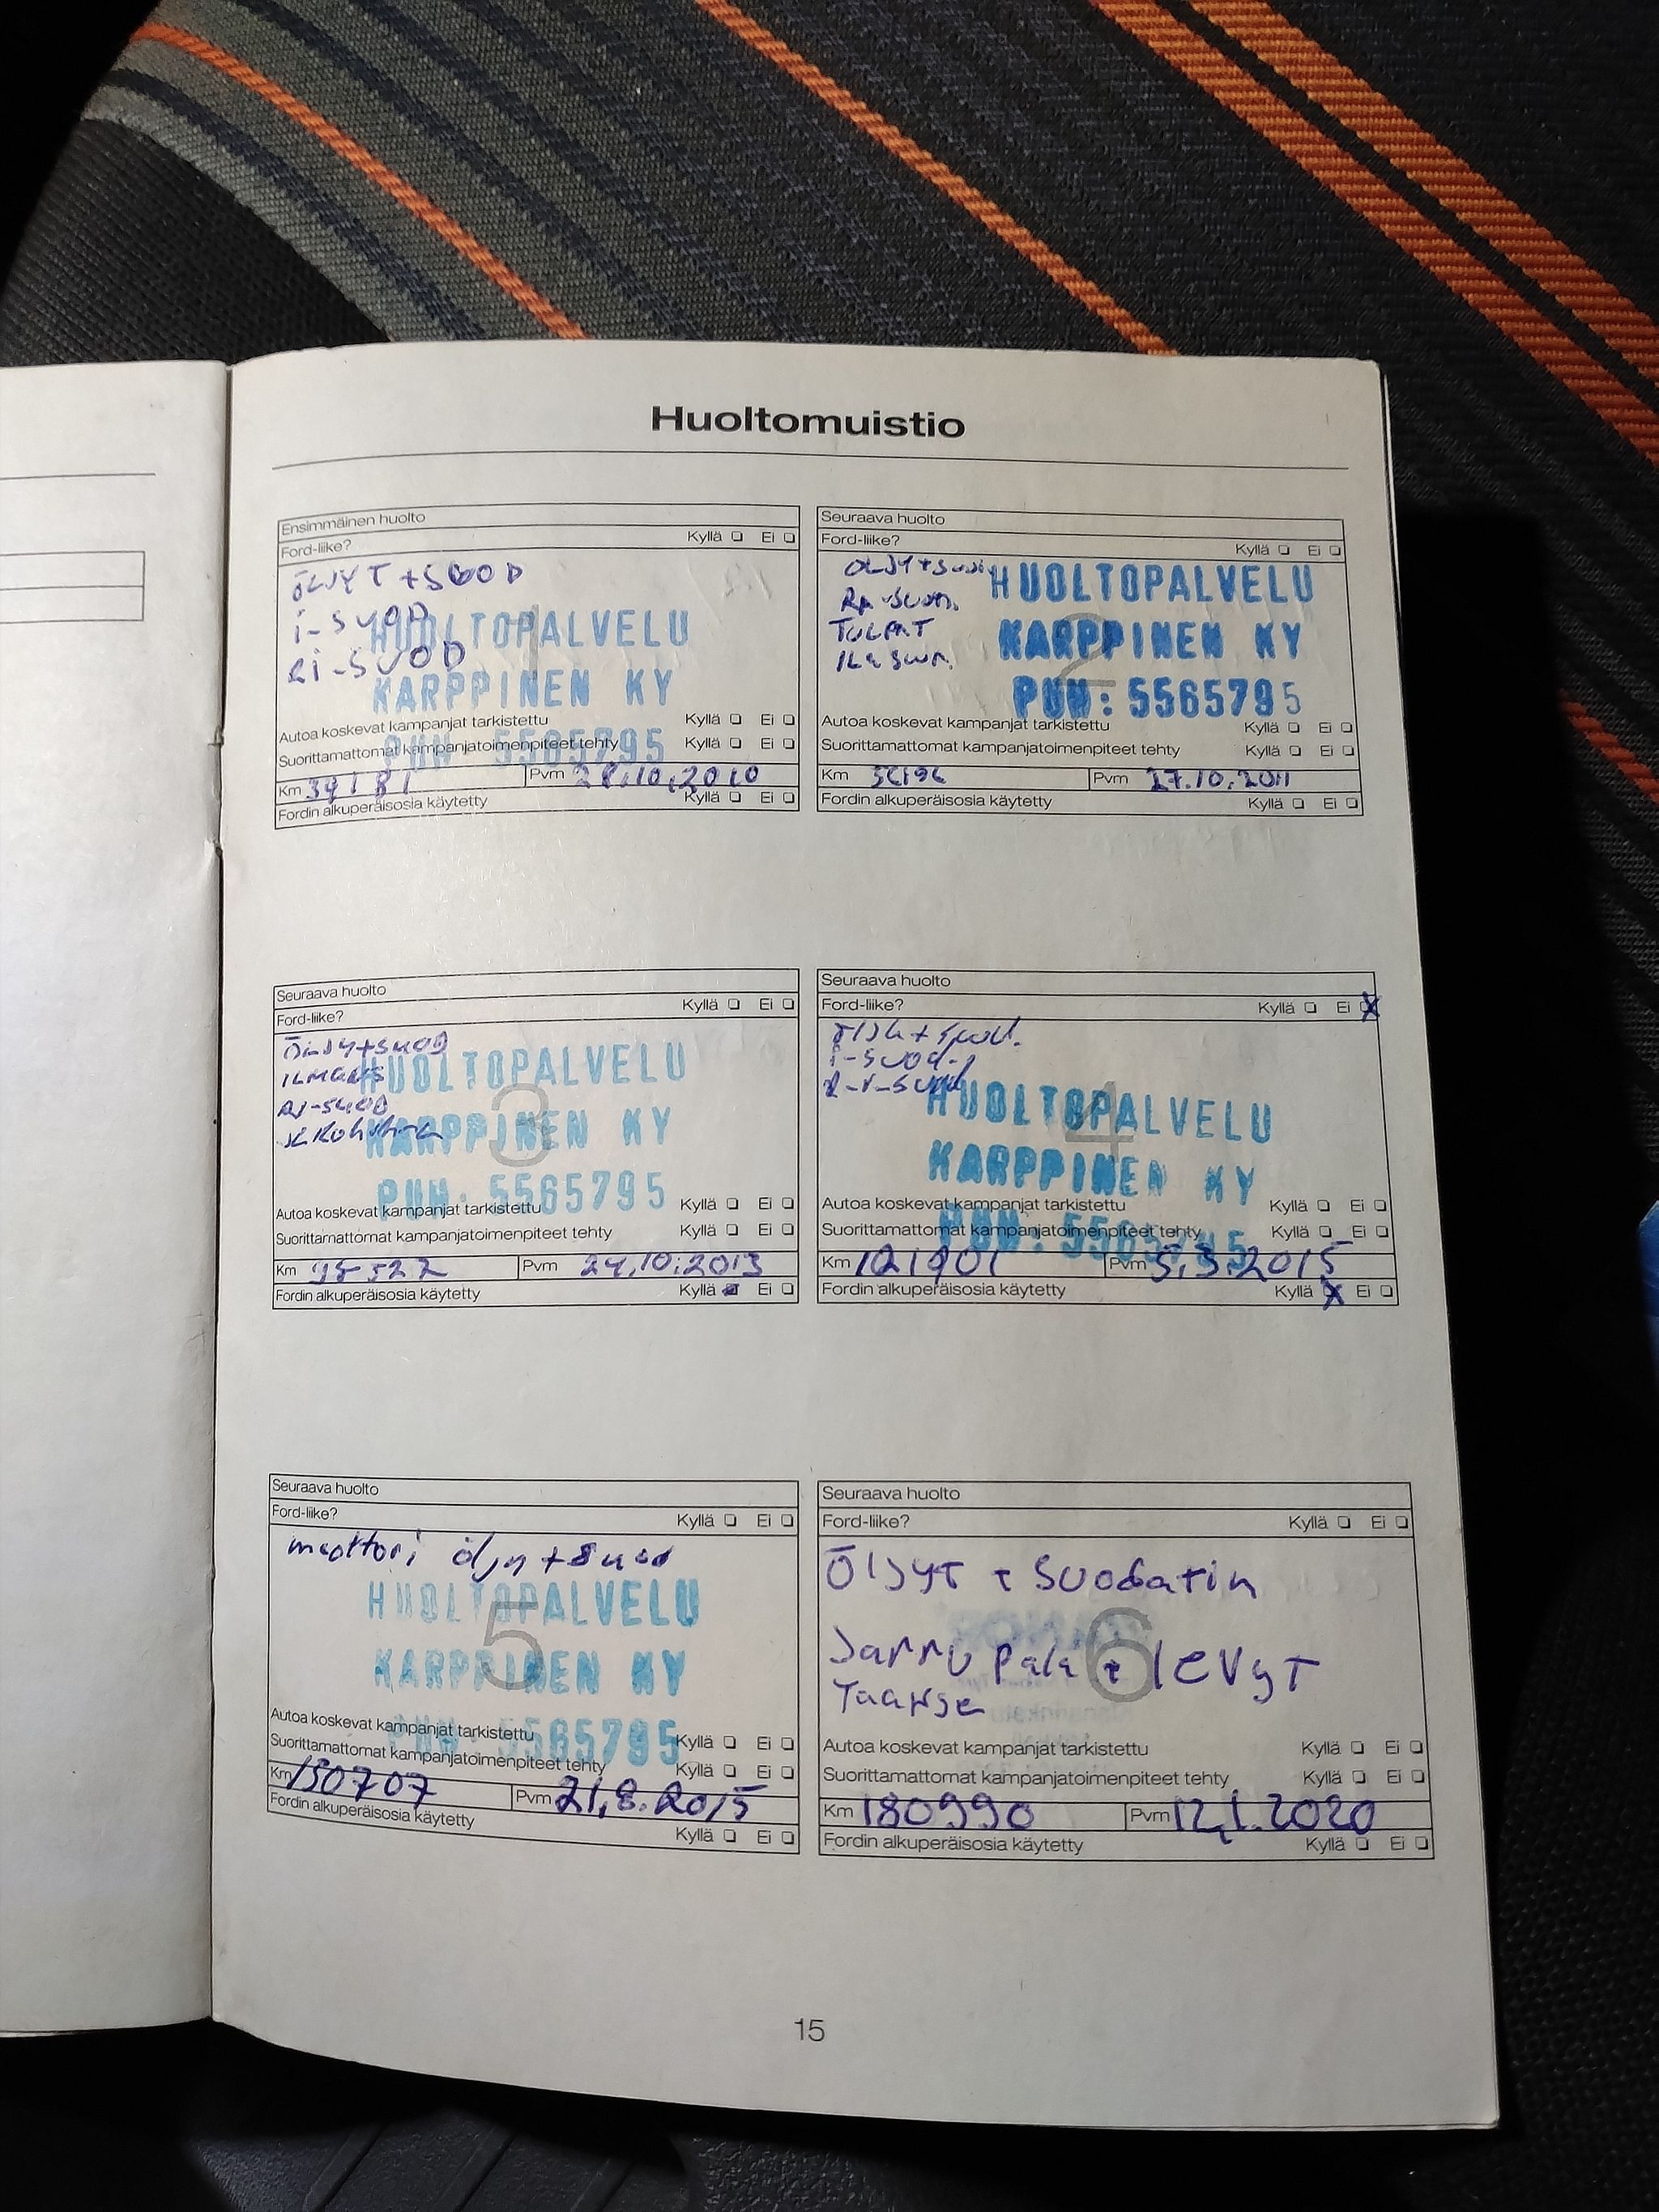 Huoltomuistio
Ensimmäinen huolto
Ford-liike? Kyllä Ei
ÖLJYT + SUOD
i-SUOD
Ri-SUOD
HUOLTOPALVELU
KARPPINEN KY
PUH. 5565795
1
Autoa koskevat kampanjat tarkistettu Kyllä Ei
Suorittamattomat kampanjatoimenpiteet tehty Kyllä Ei
Km 39181 Pvm 28.10.2010
Fordin alkuperäisosia käytetty Kyllä Ei
Seuraava huolto
Ford-liike? Kyllä Ei
TULPAT
HUOLTOPALVELU
KARPPINEN KY
PUH: 5565795
2
Autoa koskevat kampanjat tarkistettu Kyllä Ei
Suorittamattomat kampanjatoimenpiteet tehty Kyllä Ei
Km Pvm 27.10.2011
Fordin alkuperäisosia käytetty Kyllä Ei
Seuraava huolto
Ford-liike? Kyllä Ei
ÖLJY+SUOD
RI-SUOD
HUOLTOPALVELU
KARPPINEN KY
PUH. 5565795
3
Autoa koskevat kampanjat tarkistettu Kyllä Ei
Suorittamattomat kampanjatoimenpiteet tehty Kyllä Ei
Km Pvm 24.10.2013
Fordin alkuperäisosia käytetty Kyllä Ei
Seuraava huolto
Ford-liike? Kyllä Ei X
i-suod.
HUOLTOPALVELU
KARPPINEN KY
PUH. 5565795
4
Autoa koskevat kampanjat tarkistettu Kyllä Ei
Suorittamattomat kampanjatoimenpiteet tehty Kyllä Ei
Km 121901 Pvm 5.3.2015
Fordin alkuperäisosia käytetty Kyllä X Ei
Seuraava huolto
Ford-liike? Kyllä Ei
moottori öljy + suod
HUOLTOPALVELU
KARPPINEN KY
PUH. 5565795
5
Autoa koskevat kampanjat tarkistettu Kyllä Ei
Suorittamattomat kampanjatoimenpiteet tehty Kyllä Ei
Km 150707 Pvm 21.8.2015
Fordin alkuperäisosia käytetty Kyllä Ei
Seuraava huolto
Ford-liike? Kyllä Ei
Öljyt + Suodatin
Jarru Pala + levyt
Taakse
6
Autoa koskevat kampanjat tarkistettu Kyllä Ei
Suorittamattomat kampanjatoimenpiteet tehty Kyllä Ei
Km 180990 Pvm 12.1.2020
Fordin alkuperäisosia käytetty Kyllä Ei
15